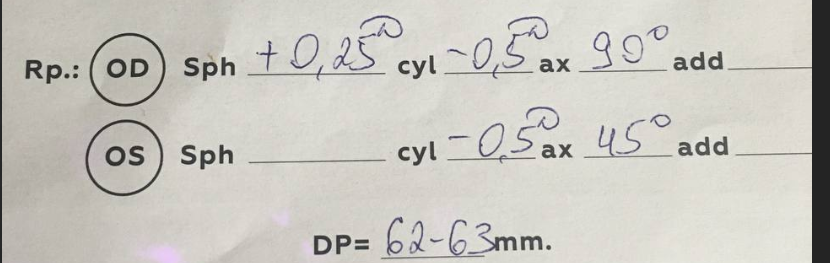 Rp.: OD Sph +0,25D cyl -0,5D ax 90° add
OS Sph cyl -0,5D ax 45° add
DP= 62-63mm.